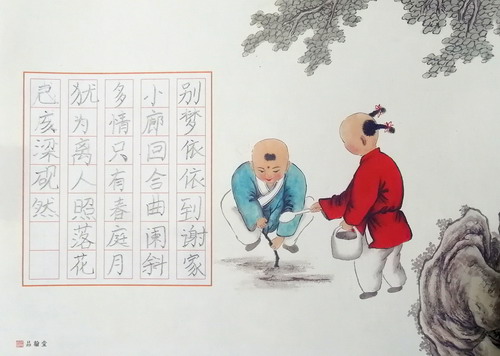 别梦依依到谢家
小廊回合曲阑斜
多情只有春庭月
犹为离人照落花
己亥梁砚然
品翰堂